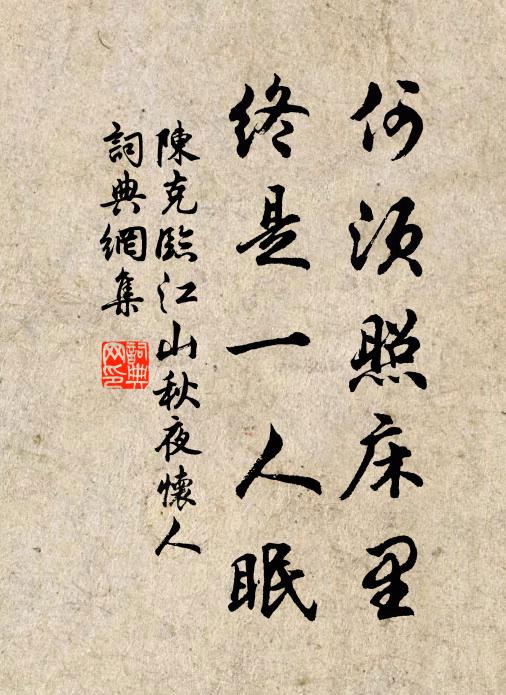 何須照床里
終是一人眠
陳克臨江山秋夜懷人
詞典網集
詞典
网印